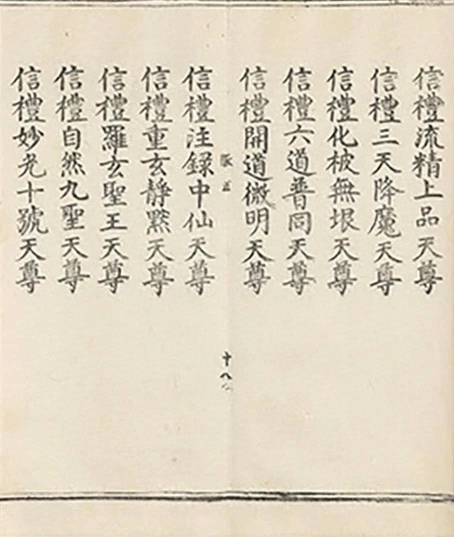 信禮流精上品天尊
信禮三天降魔天尊
信禮化被無垠天尊
信禮六道普同天尊
信禮開道微明天尊
十八
信禮注録中仙天尊
信禮重玄靜默天尊
信禮羅玄聖王天尊
信禮自然九聖天尊
信禮妙光十號天尊